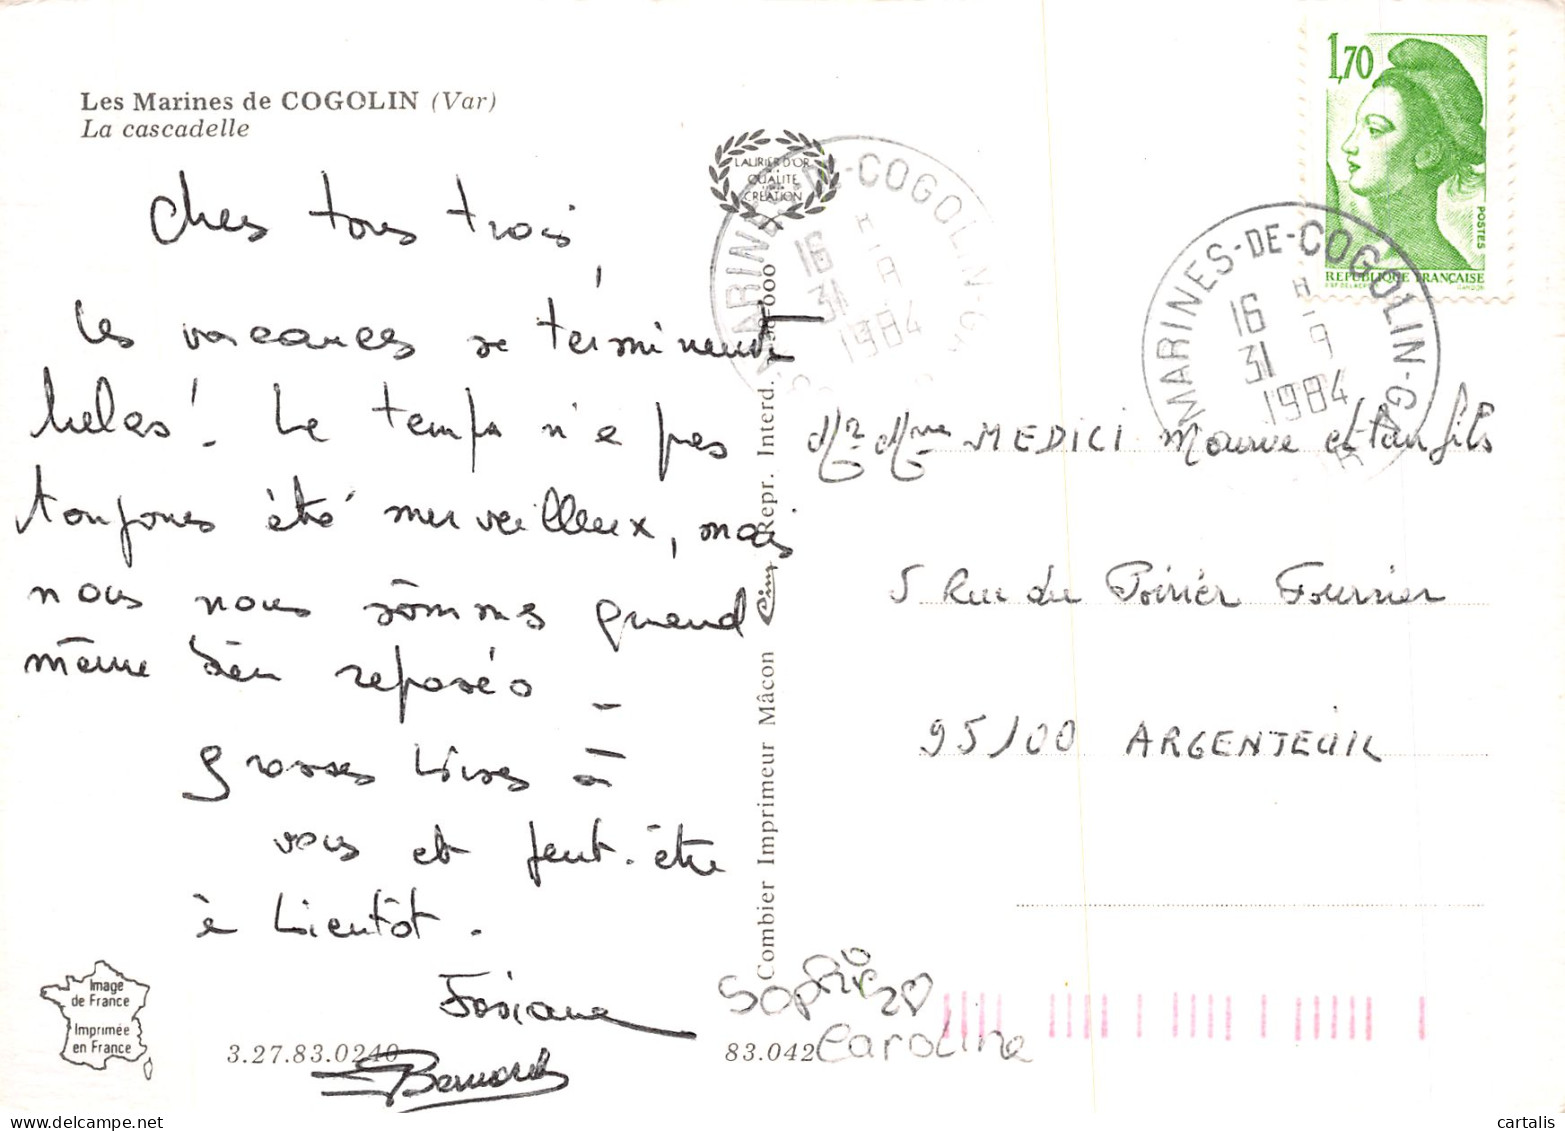 Les Marines de COGOLIN (Var)
La cascadelle
Chers tous trois,
Les vacances se terminent
helas! Le temps n'a pas
toujours été merveilleux, mais
nous nous sommes quand
même bien reposés _
Grosses bises à
vous et peut-être
à bientôt.
Josiane
Bernard
Sophie
Caroline
LAURIER D'OR
QUALITE
CREATION
MARINES-DE-COGOLIN-G
16 H
31 -9
1984
1,70
POSTES
REPUBLIQUE FRANÇAISE
MARINES-DE-COGOLIN-G
16 H
31 -9
1984
Mr Mme MEDICI et fils
5 Rue du Poirier Fournier
95100 ARGENTEUIL
Combier Imprimeur Mâcon Cim Repr. Interd.
Image
de France
Imprimée
en France
3.27.83.0240
83.042
cartalis